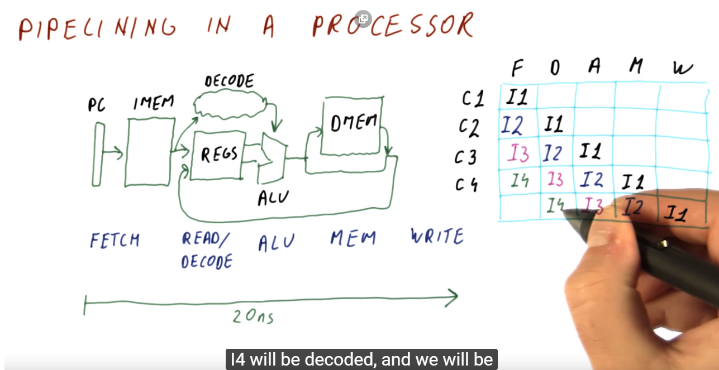 PIPELINING IN A PROCESSOR
DECODE
PC IMEM
REGS
DMEM
ALU
FETCH READ/DECODE ALU MEM WRITE
20ns
F D A M W
C1 I1
C2 I2 I1
C3 I3 I2 I1
C4 I4 I3 I2 I1
I4 I3 I2 I1
I4 will be decoded, and we will be